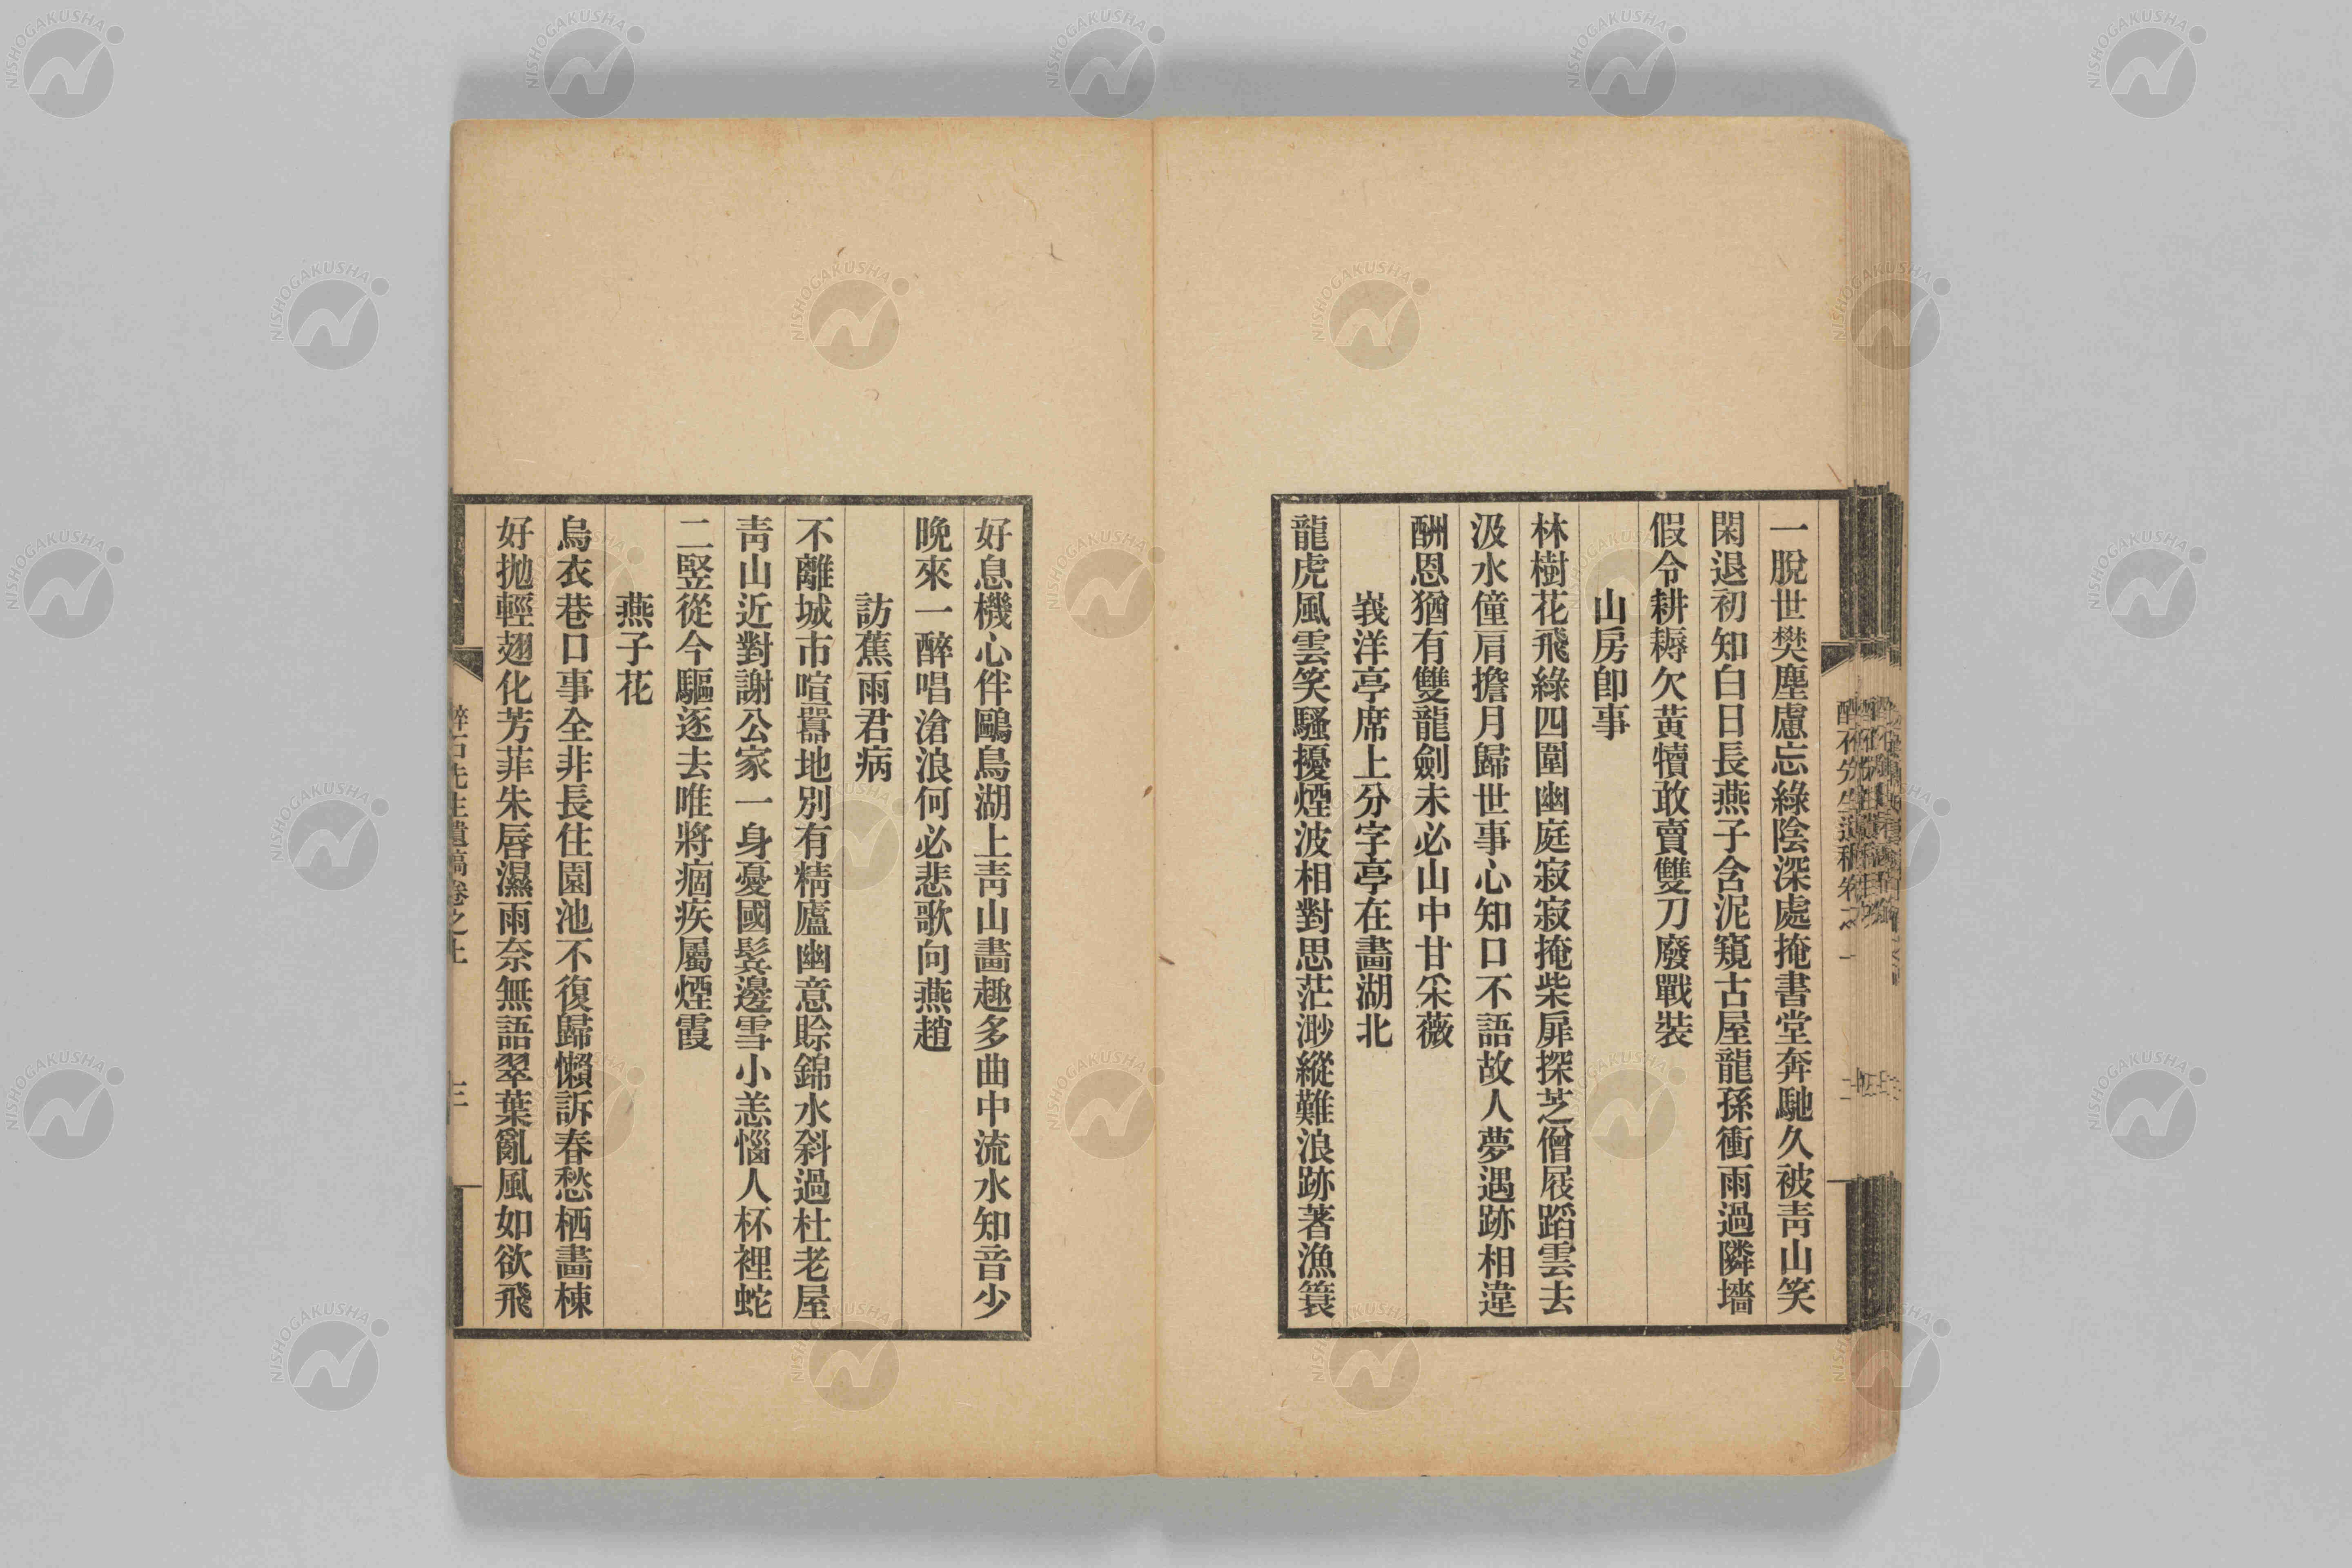 一脫世樊塵慮忘綠陰深處掩書堂奔馳久被靑山笑
閑退初知白日長燕子含泥窺古屋龍孫衝雨過隣墻
假令耕耨欠黃犢敢賣雙刀廢戰裝
山房卽事
林樹花飛綠四圍幽庭寂寂掩柴扉探芝僧屐蹈雲去
汲水僮肩擔月歸世事心知口不語故人夢遇跡相違
酬恩猶有雙龍劍未必山中甘采薇
峩洋亭席上分字亭在畫湖北
龍虎風雲笑騷擾煙波相對思茫渺縱難浪跡著漁簑
好息機心伴鷗鳥湖上靑山畵趣多曲中流水知音少
晚來一醉唱滄浪何必悲歌向燕趙
訪蕉雨君病
不離城市喧囂地別有精廬幽意賖錦水斜過杜老屋
靑山近對謝公家一身憂國鬂邊雪小恙惱人杯裡蛇
二竪從今驅逐去唯將痼疾屬煙霞
燕子花
烏衣巷口事全非長住園池不復歸懶訴春愁栖畵棟
好抛輕翅化芳菲朱唇濕雨奈無語翠葉亂風如欲飛
醉石先生遺稿卷之上
NISHOGAKUSHA